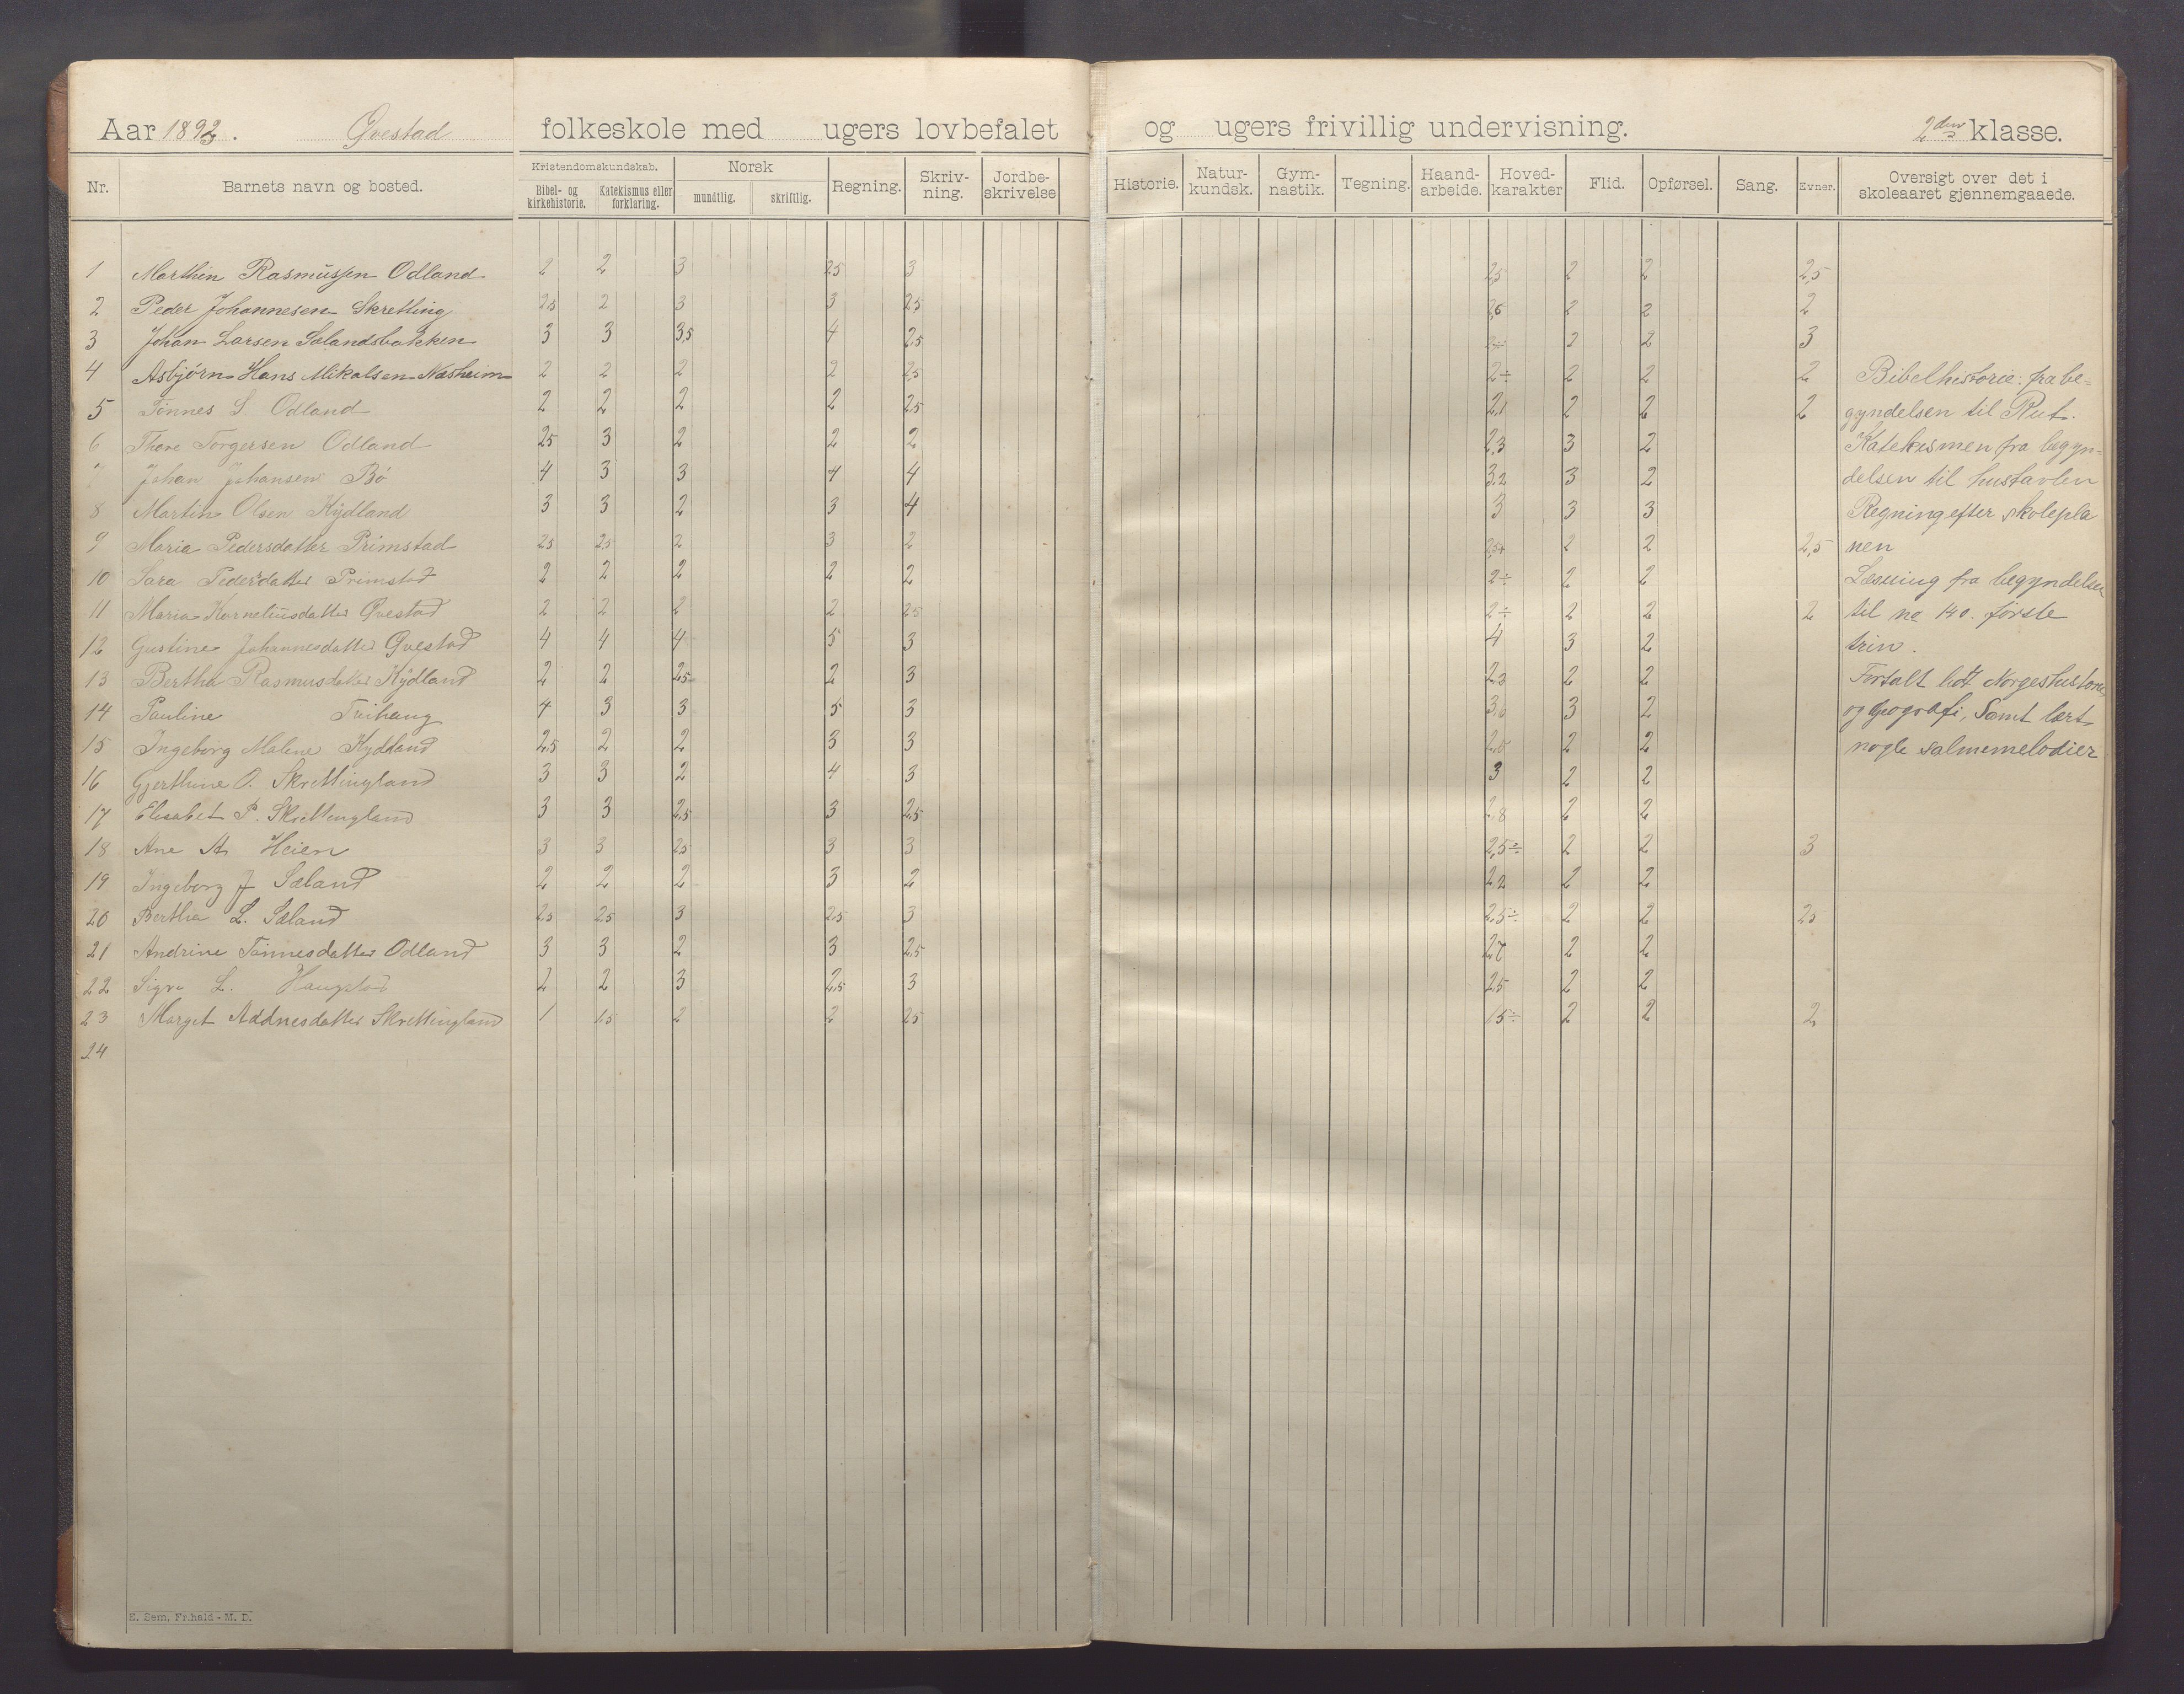 Aar 1893. Qvestad folkeskole med ugers lovbefalet og ugers frivillig undervisning. 2den klasse.
Nr. Barnets navn og bosted. Kristendomskundskab. Bibel- og kirkehistorie. Katekismus eller forklaring. Norsk mundtlig. skriftlig. Regning. Skriv-ning. Jordbe-skrivelse Historie. Natur-kundsk. Gym-nastik. Tegning. Haand-arbeide. Hoved-karakter Flid. Opførsel. Sang. Evner. Oversigt over det i skoleaaret gjennemgaaede.
1 Marthin Rasmussen Odland 2 2 3 2,5 3 2,5 2 2 2,5
2 Peder Johannesen Skretting 2,5 2 3 3 2,5 2,6 2 2 2
3 Johan Larsen Sælandsbakken 3 3 3,5 4 2,5 2 2 3
4 Asbjørn Hans Mikalsen Næsheim 2 2 2 2 2,5 2÷ 2 2 2 Bibelhistorie: fra be=
5 Tønnes S. Odland 2 2 2 2 2,5 2,1 2 2 2 gyndelsen til Rut.
6 Thore Torgersen Odland 2,5 3 2 2 2 2,3 3 2 Katekismen fra begyn=
7 Johan Johansen Bø 4 3 3 4 4 3,2 3 2 delsen til hustavlen
8 Martin Olsen Kydland 3 3 2 3 4 3 3 3 Regning efter skolepla
9 Maria Pedersdatter Primstad 2,5 2,5 2 3 2 2,5+ 2 2 2,5 nen
10 Sara Pedersdatter Primstad 2 2 2 2 2 2÷ 2 2 Læsning fra begyndelsen
11 Maria Korneliusdatter Qvestad 2 2 2 2 2,5 2÷ 2 2 2 til no 140. første
12 Gustine Johannesdatter Qvestad 4 4 4 5 3 4 3 2 trin.
13 Bertha Rasmusdatter Kydland 2 2 2,5 2 3 2,3 2 2 Fortalt lidt Norgeshistorie
14 Pauline 4 3 3 5 3 3,6 3 2 og geografi, Samt lært
15 Ingeborg Malene Kydland 2,5 2 2 3 3 2,5 2 2 nogle salmemelodier
16 Gjerthine O. Skrettingland 3 3 2 4 3 3 2 2
17 Elisabet P. Skrettingland 3 3 2,5 3 2,5 2,8 2 2
18 Ane A. Heien 3 3 2,5 3 3 2,5÷ 2 2 3
19 Ingeborg J Sæland 2 2 2 3 2 2,2 2 2
20 Bertha L. Sæland 2,5 2,5 3 2,5 3 2,5÷ 2 2 2,5
21 Andrine Tønnesdatter Odland 3 3 2 3 2,5 2,7 2 2
22 L. Haugstad 2 2 3 2,5 3 2,5 2 2
23 Marget Adnesdatter Skrettingland 1 1,5 2 2 2,5 1,5÷ 2 2 2
24
E. Sem, Fr.hald - M. D.